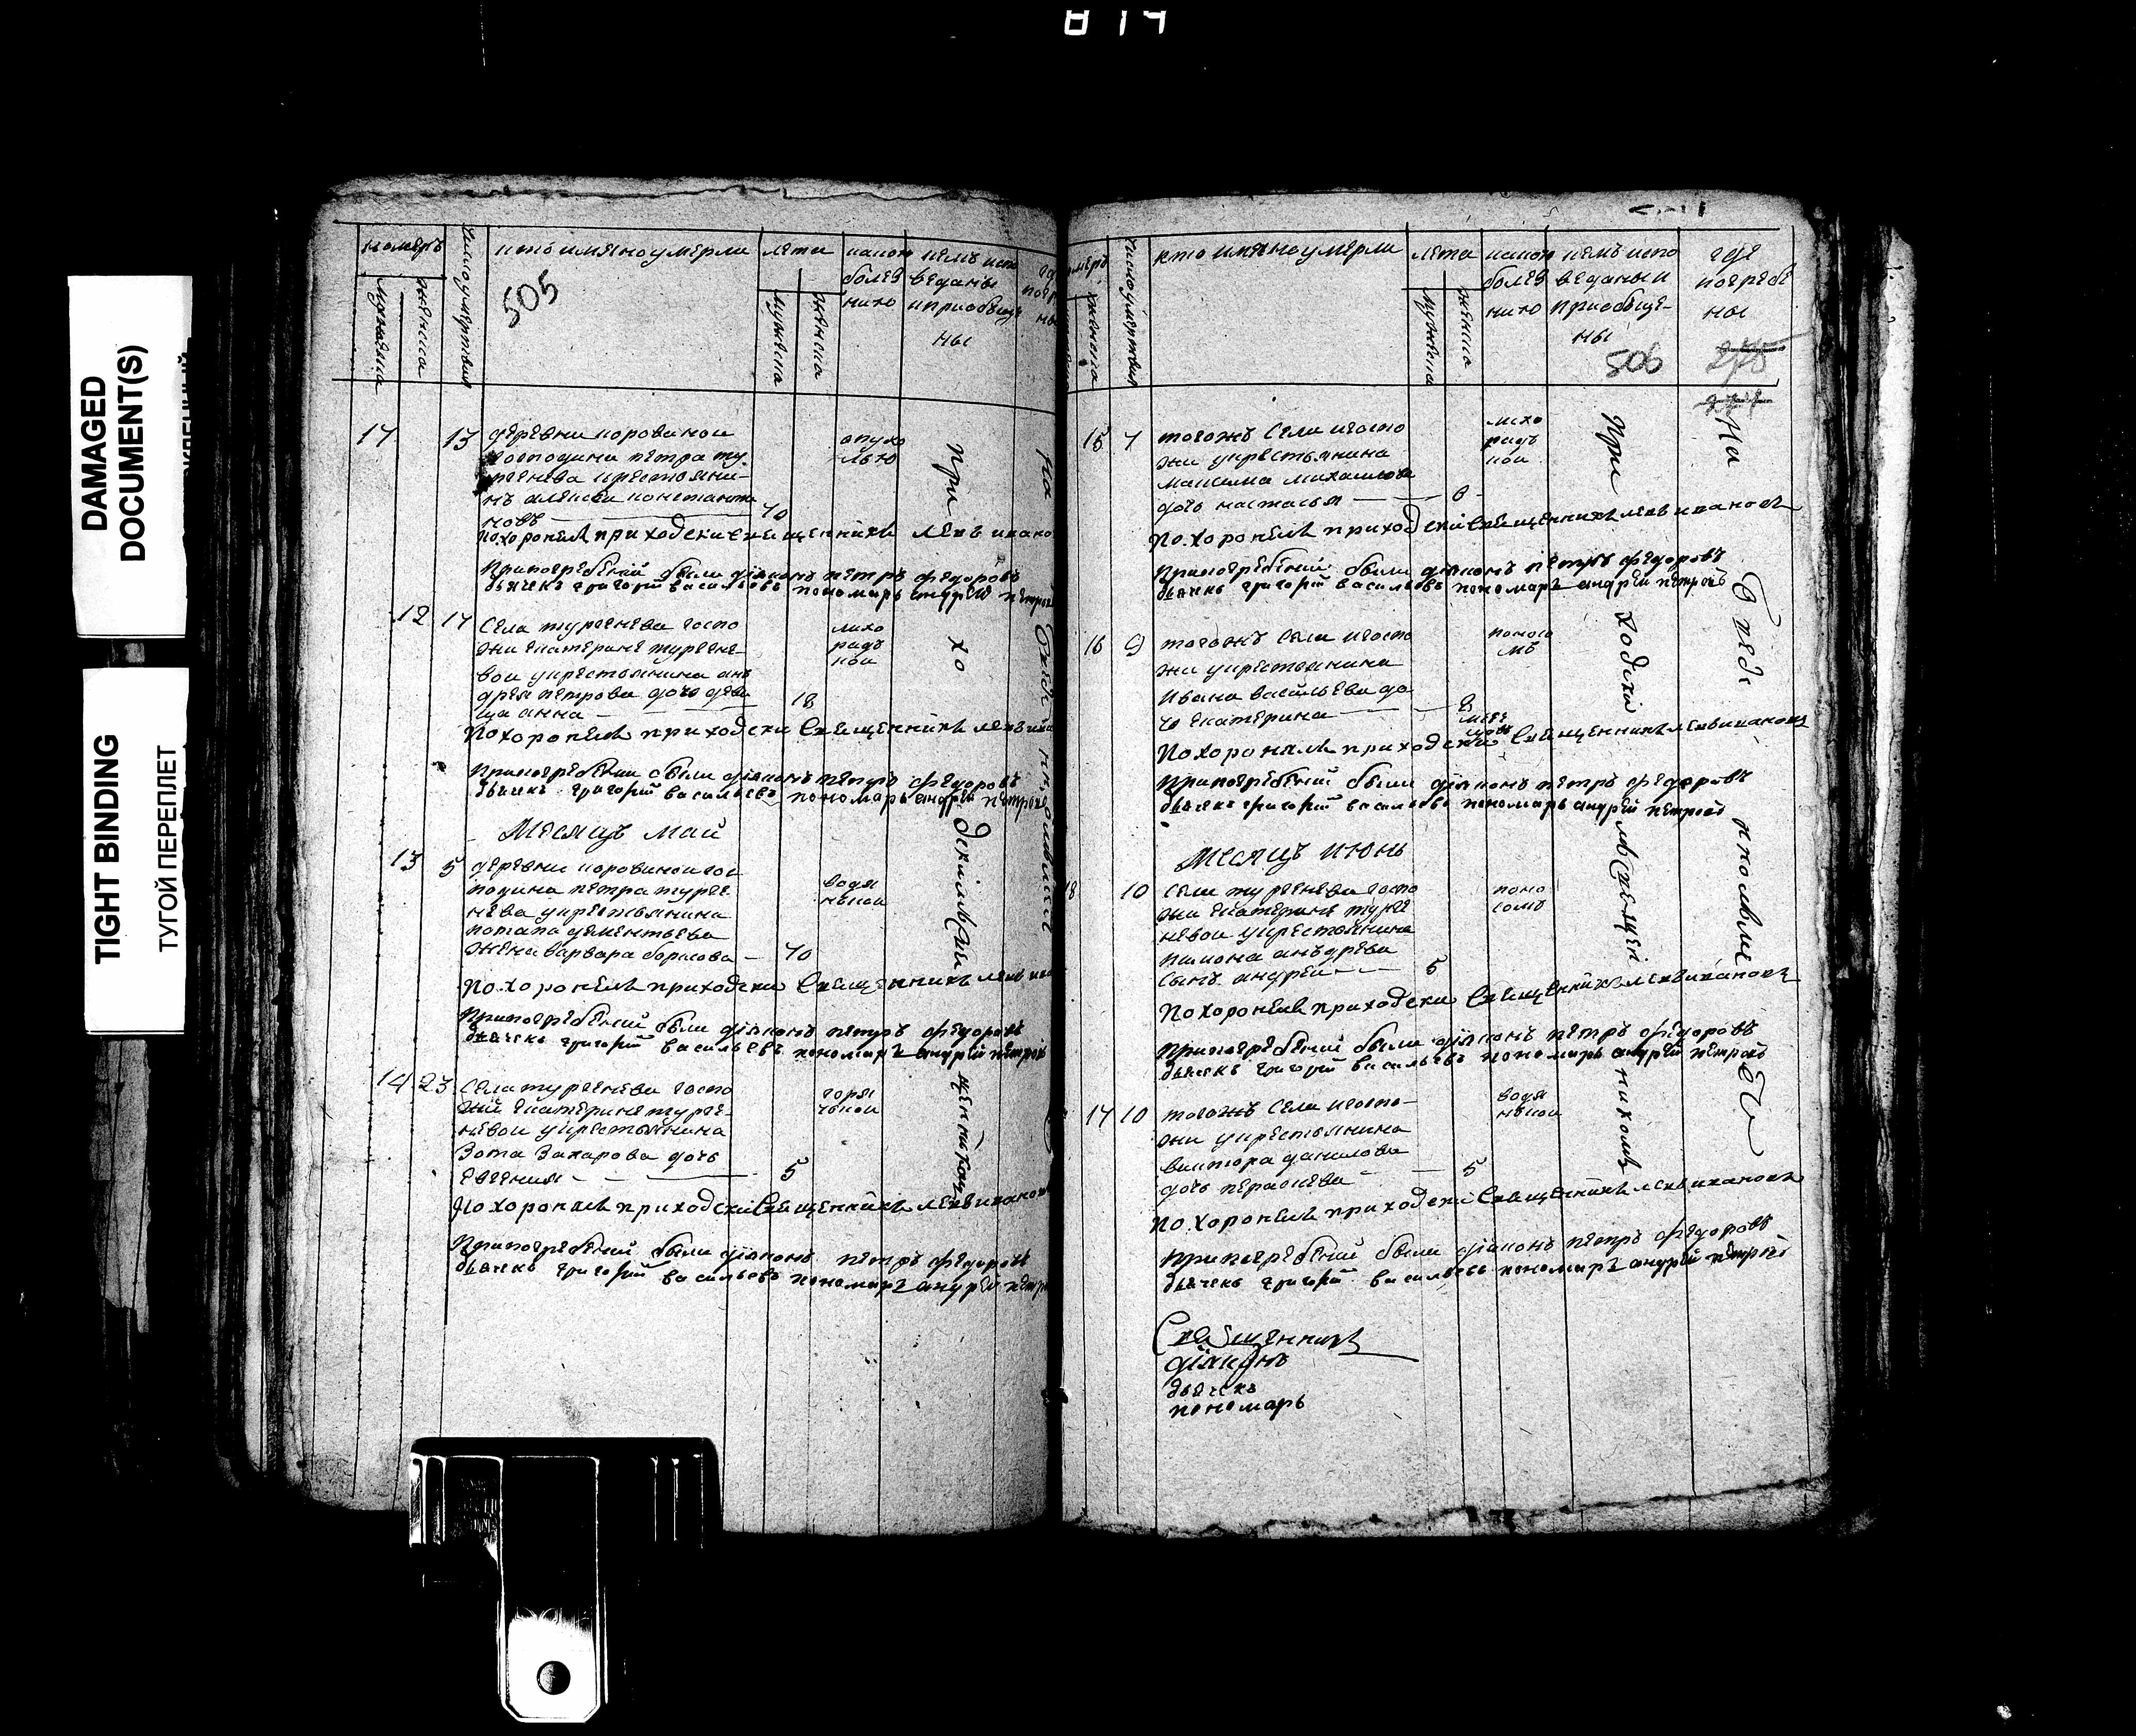 814
DAMAGED
DOCUMENT(S)
TIGHT BINDING
ТУГОЙ ПЕРЕПЛЕТ
номеръ
мужеска
женска
число умертвия
кто имяно умерли
505
лета
мужеска
женска
какою
болез
нию
кемъ испо
веданы
и приобще
ны
17
13
деревни коровиной
господина петра ту
ргенева крестьяни
нъ алексеи константи
новъ
70
опухо
лью
Похоронилъ приходски священникъ левъ ивано
При погребении были диаконъ петръ федоровъ
дьячекъ григорий васильевъ пономарь андрей петровъ
12
17
Села тургенева госпо
жи екатерине тургене
вои у крестьянина ан
дрея петрова дочь деви
ца анна
18
лихо
рад
кои
Похоронилъ приходски священникъ левъ ива
При погребении были диаконъ петръ федоровъ
дьячекъ григорий васильевъ пономарь андрей петровъ
Месяцъ май
13
5
деревни коровинои гос
подина петра турге
нева у крестьянина
потапа дементьева
жена варвара борисова
70
водя
ною
Похоронилъ приходски священникъ левъ ива
При погребений были диаконъ петръ федоровъ
дьячекъ григорий васильевъ пономарь андрей петровъ
14
23
Села тургенева госпо
жи екатерине турге
невои у крестьянина
Зота Захарова дочь
Евгения
5
горя
чкои
Похоронилъ приходски священникъ левъ иванов
При погребений были диаконъ петръ федоровъ
дьячекъ григорий васильевъ пономарь андрей петр
при
хо
дскимъ
на
женска
число умертвия
кто имяно умерли
лета
мужеска
женска
какою
болез
нию
кемъ испо
веданы и
приобще
ны
506
где
погребе
ны
15
7
тогожъ Села и госпо
жи у крестьянина
максима михаилова
дочь настасья
6
лихо
рад
кои
Похоронилъ приходски священникъ левъ ивановъ
При погребений были диаконъ петръ федоровъ
дьячекъ григорий васильевъ пономарь андрей петровъ
16
9
тогожъ Села и госпо
жи у крестьянина
Ивана васильева до
чь екатерина
8
поносо
мъ
Похоронилъ приходски священникъ левъ ивановъ
При погребений были диаконъ петръ федоровъ
дьячекъ григорий васильевъ пономарь андрей петровъ
Месяцъ июнь
18
10
Села тургенева госпо
жи екатерине турге
невои у крестьянина
андреева
сынъ андреи
5
поно
сомъ
Похоронилъ приходски священникъ левъ ивановъ
При погребений были диаконъ петръ федоровъ
дьячекъ григорий васильевъ пономарь андрей петровъ
17
10
тогожъ Села и госпо
жи у крестьянина
виктора данилова
дочь
5
водя
ною
Похоронилъ приходски священникъ левъ ивановъ
При погребений были диаконъ петръ федоровъ
дьячекъ григорий васильевъ пономарь андрей петровъ
Священникъ
диаконъ
дьячекъ
пономарь
При
ходским
священ
никомъ
На